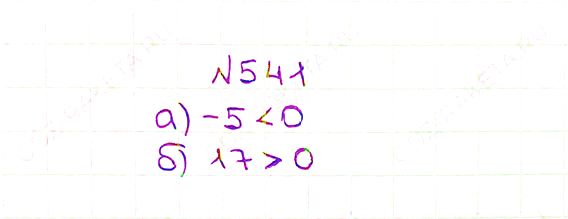 №541
а) -5 < 0
б) 17 > 0